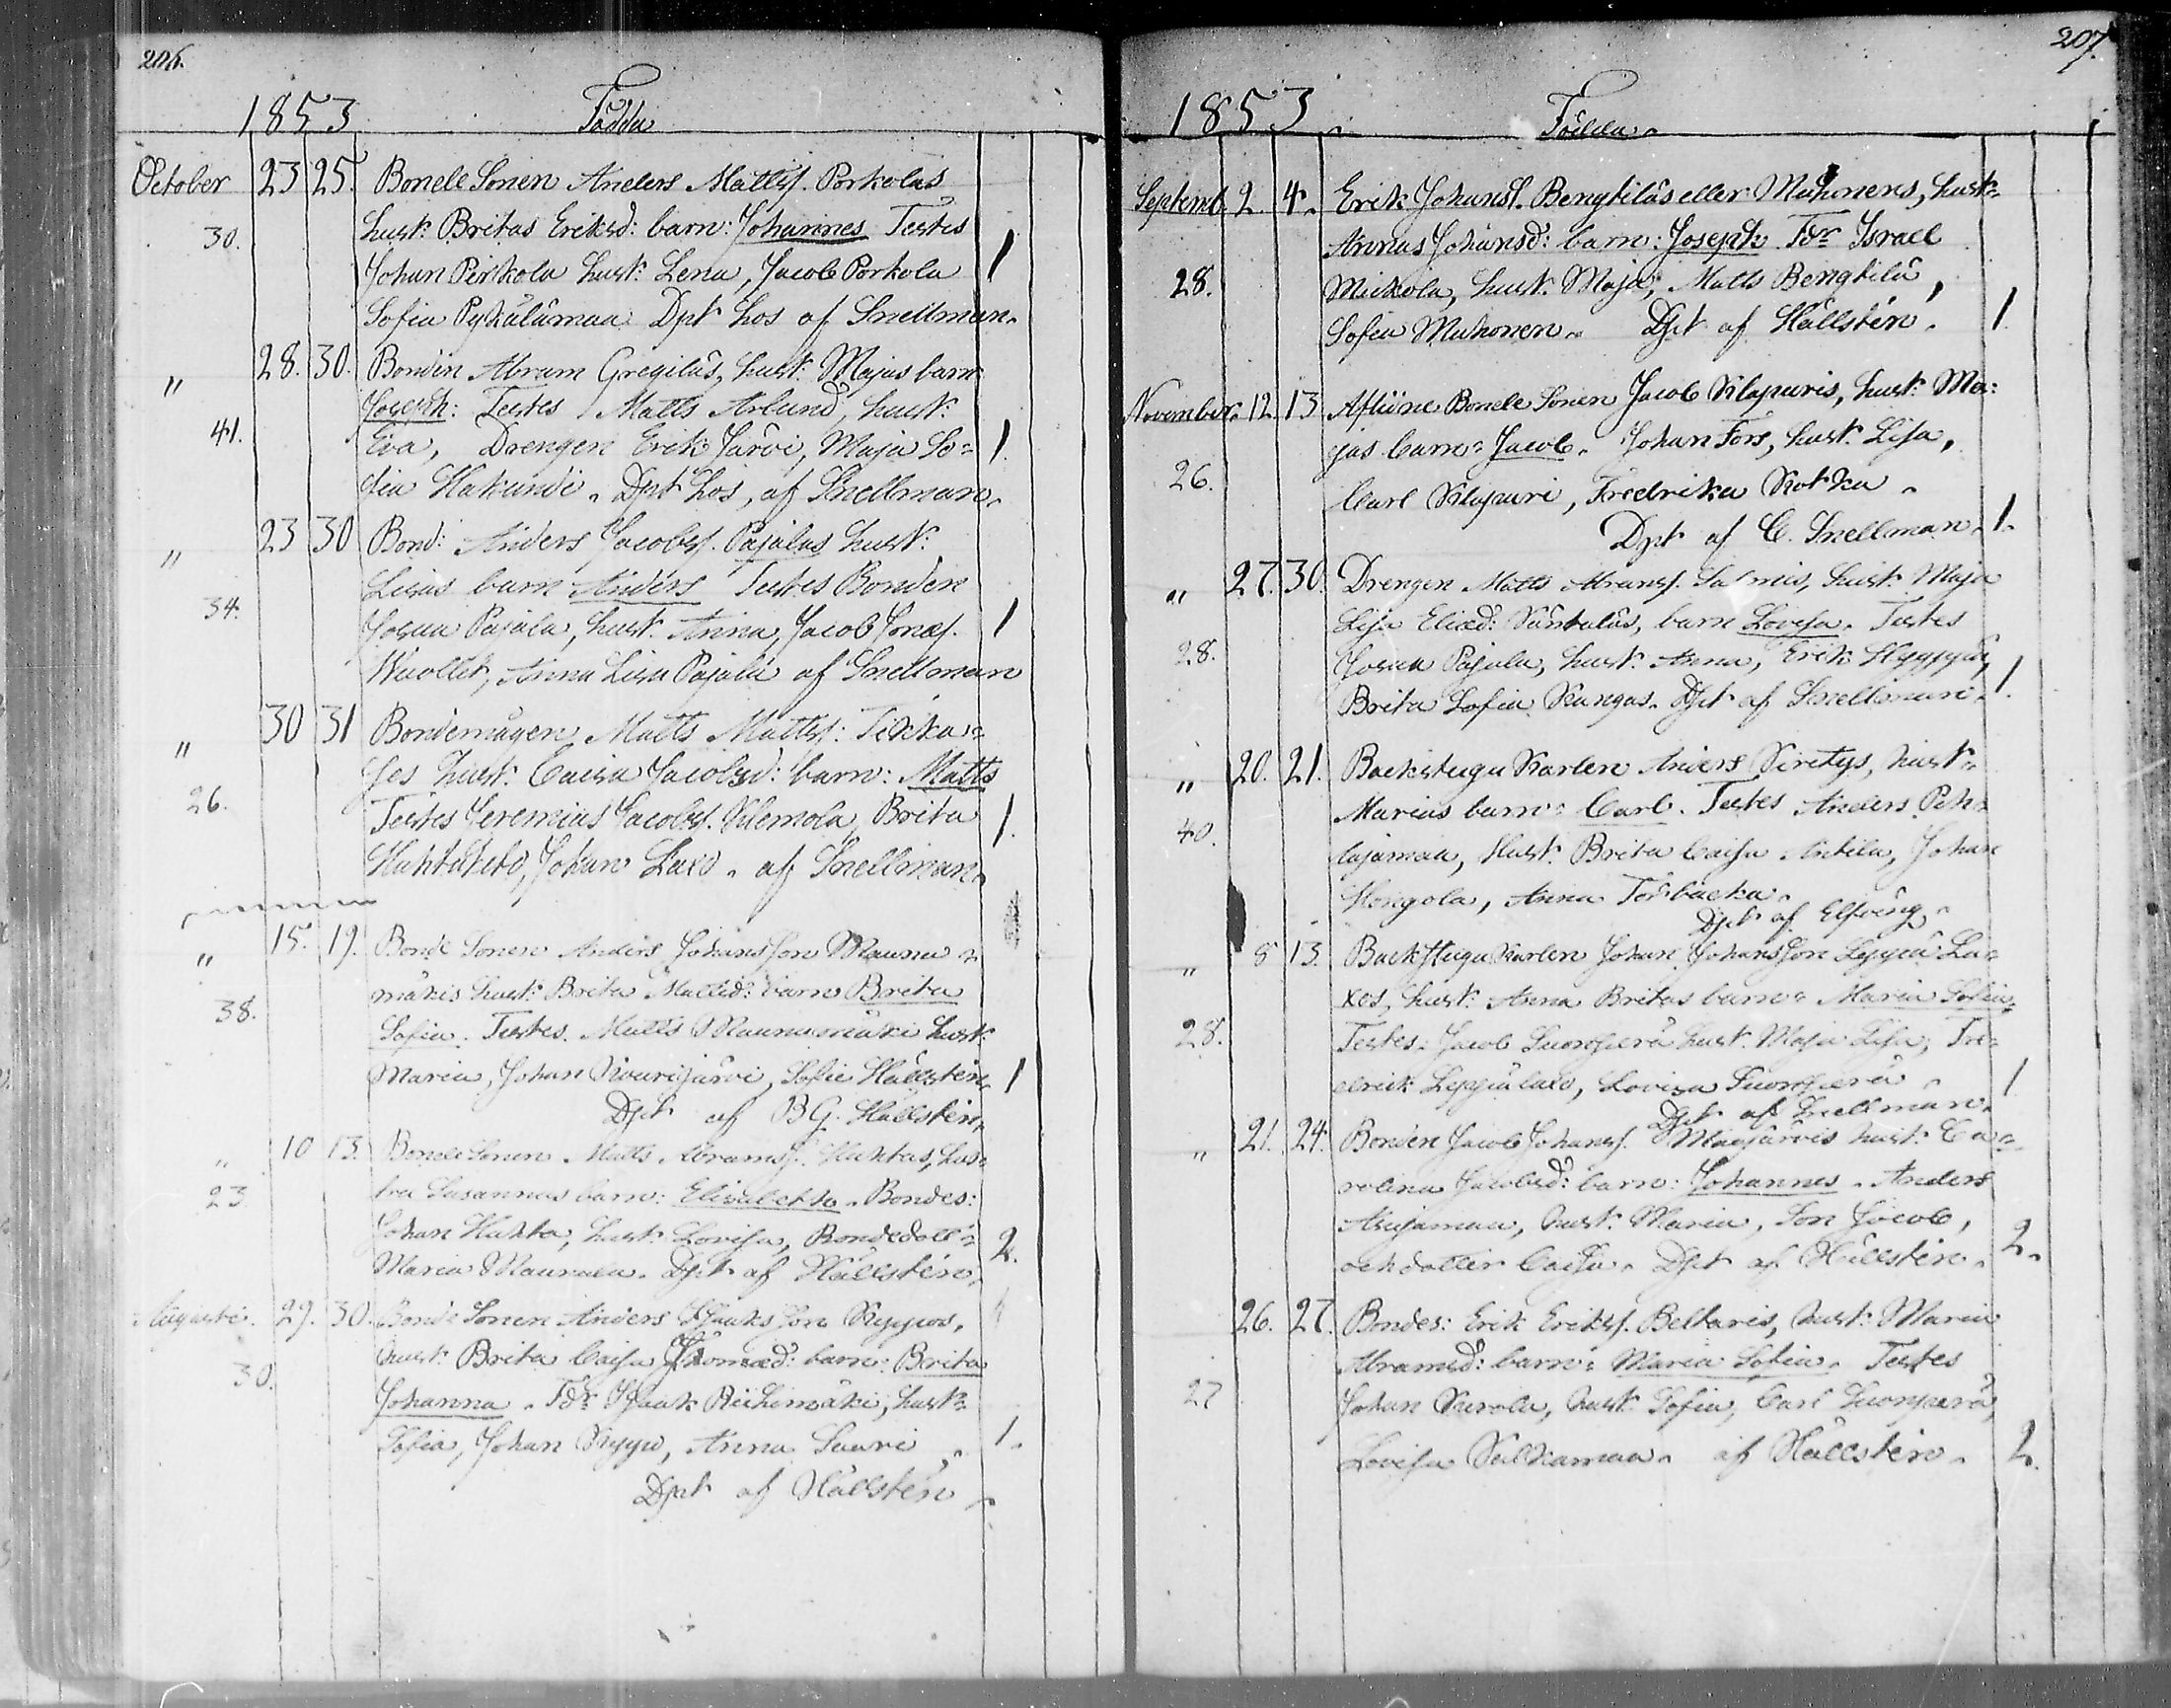 206.
1853 Födda
October 23 25. Bonde Sonen Anders Mattss. Porkolas
hust: Britas Eriksd: barn: Johannes Testes
30. Johan Perkola hust: Lena, Jacob Porkola 1
Sofia Pykälämaa Dpt hos af Snellman.
" 28. 30. Bonden Abram Gregiläs, hust: Majas barn
Joseph: Testes Matts Arlund, hust:
41. Eva, Drengen Erik Järvi, Maja So= 1.
fia Hakundi. Dpt hos, af Snellman.
" 23 30 Bond: Anders Jacobss. Pajalas hust:
Lisas barn Anders Testes Bonden
34. Josua Pajala, hust: Anna, Jacob Jonæs. 1
Wuollet, Anna Lisa Pajala af Snellman
" 30 31 Bondemågen Matts Mattss: Tikka=
jes hust: Caisa Jacobsd: barn: Matts
26. Testes Jeremias Jacobss. Klemola, Brita 1.
Huhtakero, Johan Laxo. af Snellman.
" 15. 19. Bonde Sonen Anders Johansson Maunu=
mäkis hust: Brita Mattsd: barn Brita
38. Sofia. Testes. Matts Maunumäki hust:
Maria, Johan Kourijärvi, Sofie Hällstén, 1
Dpt af B G. Hällstén,
" 10 13. Bonde Sonen Matts Abramss. Huhtas, hus=
23 tru Susannas barn: Elisabeth. Bondes:
Johan Huhta, hust: Lovisa, Bondedott= 2.
Maria Maunula. Dpt af Hällstén,
Augusti. 29. 30. Bonde Sonen Anders Isaksson Kyppos,
hust: Brita Caisa Thomæd: barn: Brita
30. Johanna. Fdr Isaak Riihimäki, hust:
Sofia, Johan Kyppo, Anna Suuri, 1.
Dpt af Hällstén
207.
1853. Födda.
Septemb. 2. 4. Erik Johanss. Bengtiläs eller Muhonens, hust:
Annas Johansd: barn: Joseph Fdr Israel
28. Mickola, hust: Maja, Matts Bengtilä,
Sofia Muhonen. Dpt af Hällstén. 1.
November. 12. 13 Aflidne Bonde Sonen Jacob Klapuris, hust: Ma:
jas barn: Jacob. Johan Fors, hust: Lisa,
26. Carl Klapuri, Fredrika Kotka.
Dpt af C. Snellman. 1.
" 27. 30. Drengen Matts Abramss. Salmis, hust: Maja
Lisa Eliæd: Säntaläs, barn Lovisa. Testes
28. Josua Pajula, hust: Anna, Erik Hyyppä,
Brita Sofia Kangas. Dpt af Snellman. 1.
" 20. 21. Backstugu Karlen Anders Kiretys, hust:
Marias barn: Carl. Testes Anders Peh=
40. lajamaa, Hust: Brita Caisa Antila, Johan
Hongola, Anna Torbacka.
Dpt af Elfving.
" 8 13. Backstugu Karlen Johan Johansson Leppä La=
xos, hust: Anna Britas barn: Maria Sofia,
28. Testes: Jacob Luomperä hust: Maja Lisa, Fre=
drik Leppälaxo, Lovisa Luomperä. 1
Dpt af Snellman.
" 21. 24. Bonden Jacob Johanss. Määjärvis hust: Ca=
rolina Jacobsd: barn: Johannes. Anders
Asujamaa, hust: Maria, Son Jacob,
och dotter Caisa. Dpt af Hällstén. 2.
26. 27. Bondes: Erik Erikss. Beltaris, hust: Maria
Abramsd: barn: Maria Sofia. Testes
27 Johan Kerola, hust: Sofia, Carl Luomperä,
Lovisa Valkamaa. af Hällstén. 2.